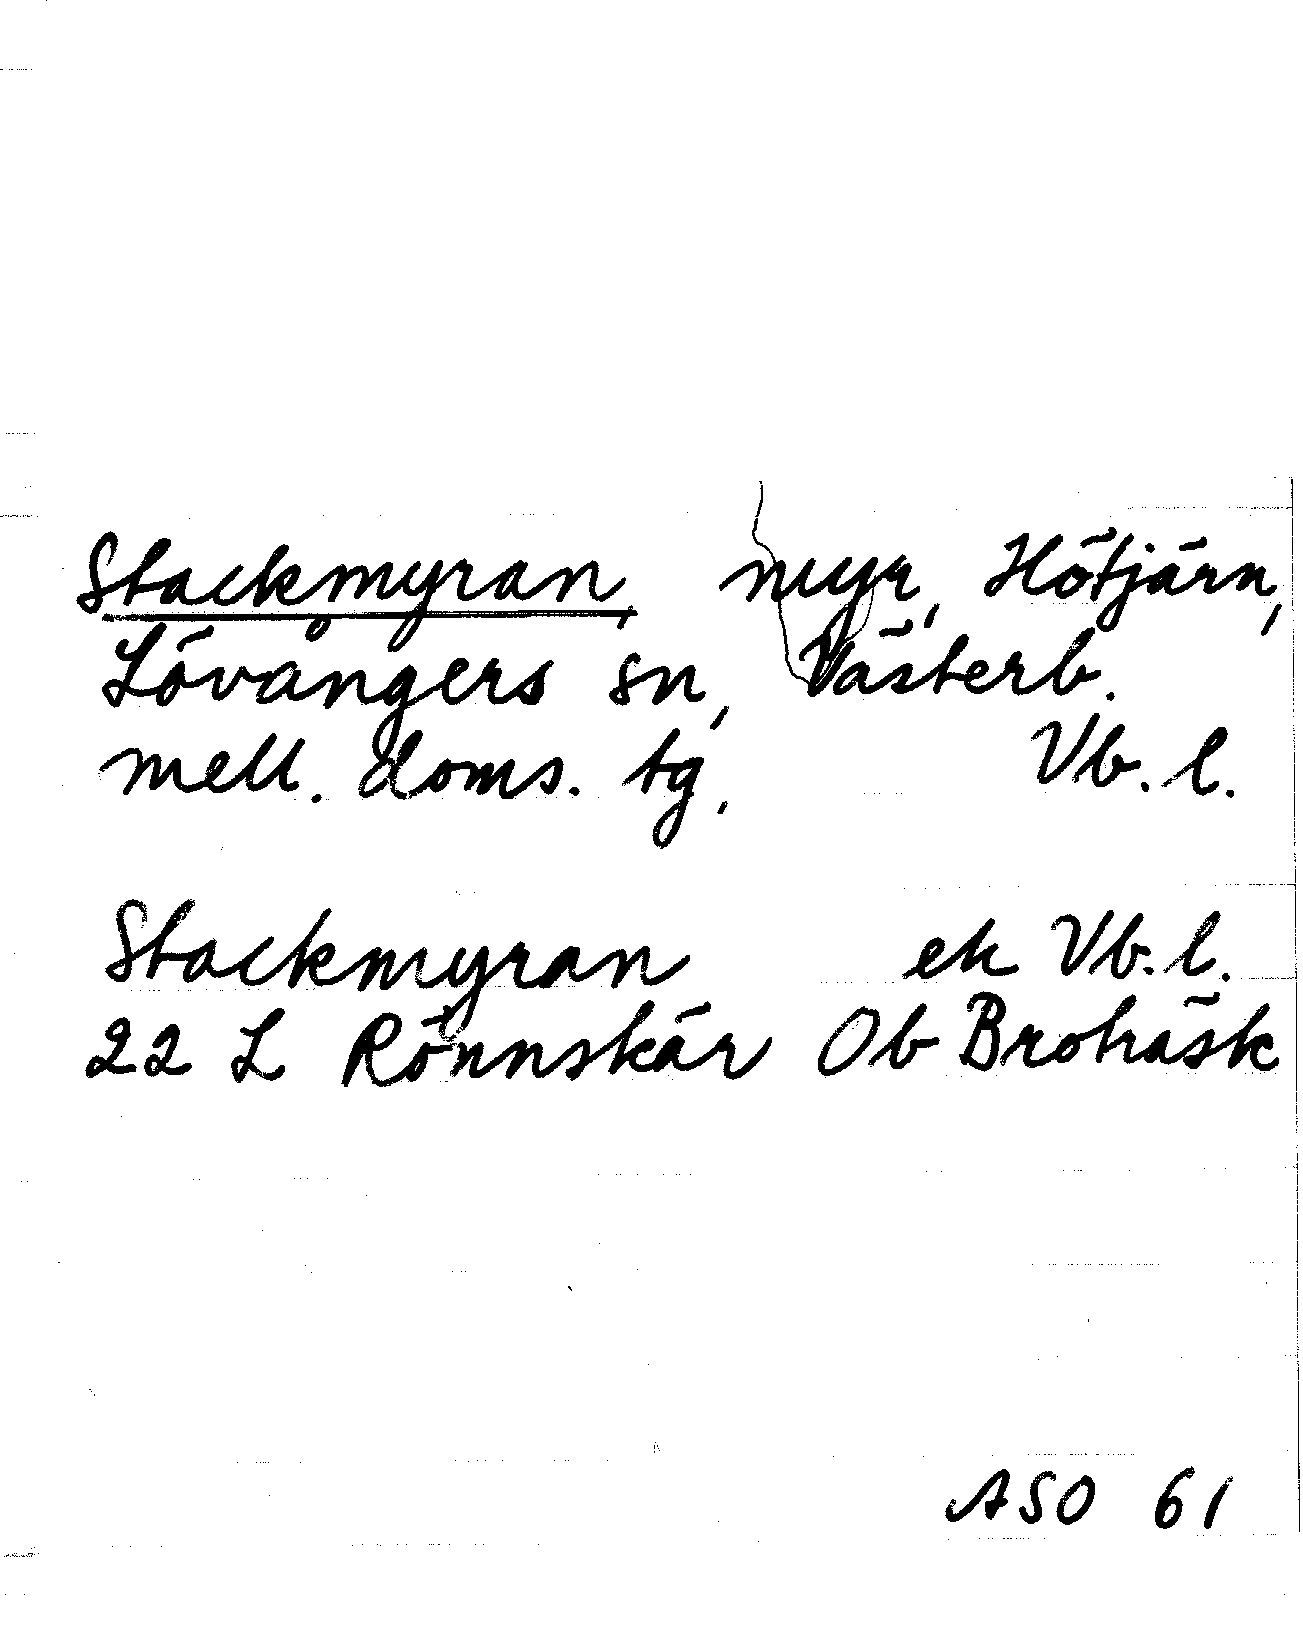 Stackmyran, myr, Hötjärn,
Lövångers sn, Västerb.
mell. doms. tg, Vb. l.
Stackmyran ek Vb. l.
22 L Rönnskär Ob Broträsk
ASO 61